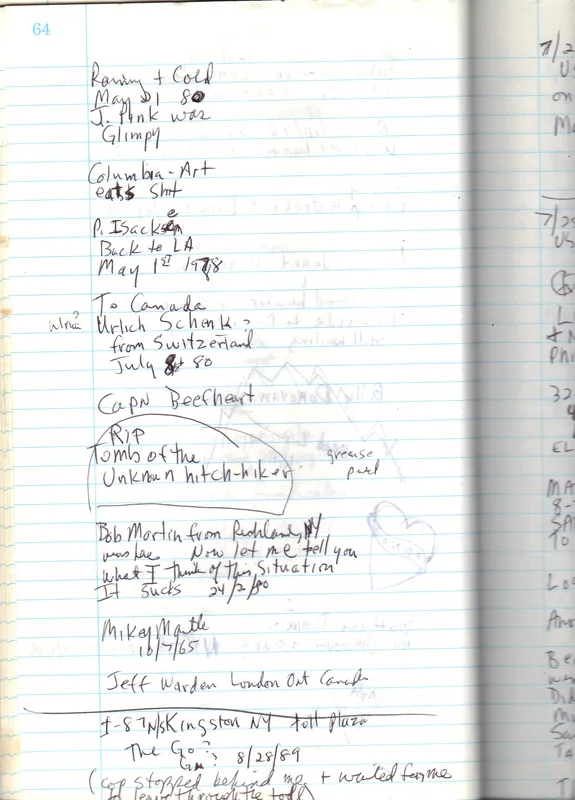 64
Raining + Cold
May 21 80
J. Pink was
Glimpy
Columbia - Art
eats shit
P. Isacksen
e
Back to LA
May 1st 1978
To Canada
?
Urlich Schenk
from Switzerland
July 80
Capn Beefheart
RIP
Tomb of the
Unknown hitch-hiker
grease
Bob Martin from Richland, NY
was here Now let me tell you
what I think of this Situation
It Sucks 24/2/80
Mikey Mantle
10/7/65
Jeff Warden London Ont Canada
I-87 N/S Kingston NY toll plaza
The Go
8/28/89
(cop stopped behind me + wanted for me
to leave through the toll)
7/2
US
on
Ma
7/29
US
L
+ N
Phi
32
4
EL
MA
8-
SA
TO
Lo
Ano
Be
wer
Did
Mi
Sau
TA